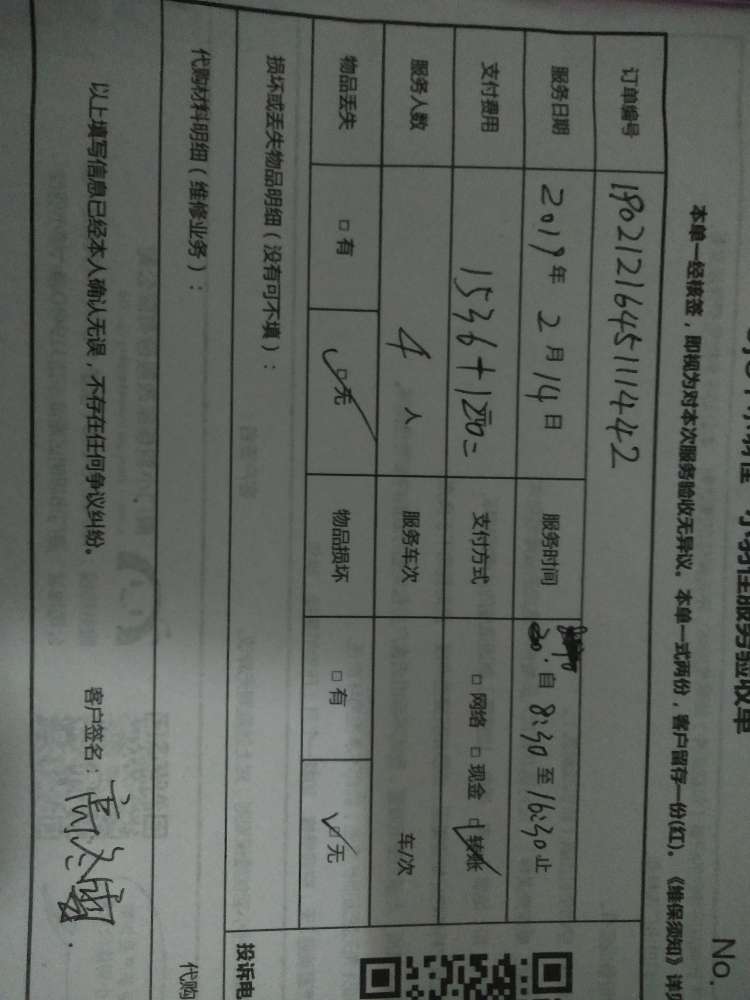 No.
服务验收单
本单一经核签，即视为对本次服务验收无异议。本单一式两份，客户留存一份(红)。《维保须知》详
订单编号 190212164511142
服务日期 2019年 2月14日 服务时间 自 8:30 至 16:30 止
支付费用 1536+1 支付方式 □ 网络 □ 现金 □ 转账
服务人数 4 人 服务车次 车/次
物品丢失 □ 有 □ 无 物品损坏 □ 有 □ 无
损坏或丢失物品明细（没有可不填）：
代购材料明细（维修业务）：
代购
投诉电
以上填写信息已经本人确认无误，不存在任何争议纠纷。 客户签名：